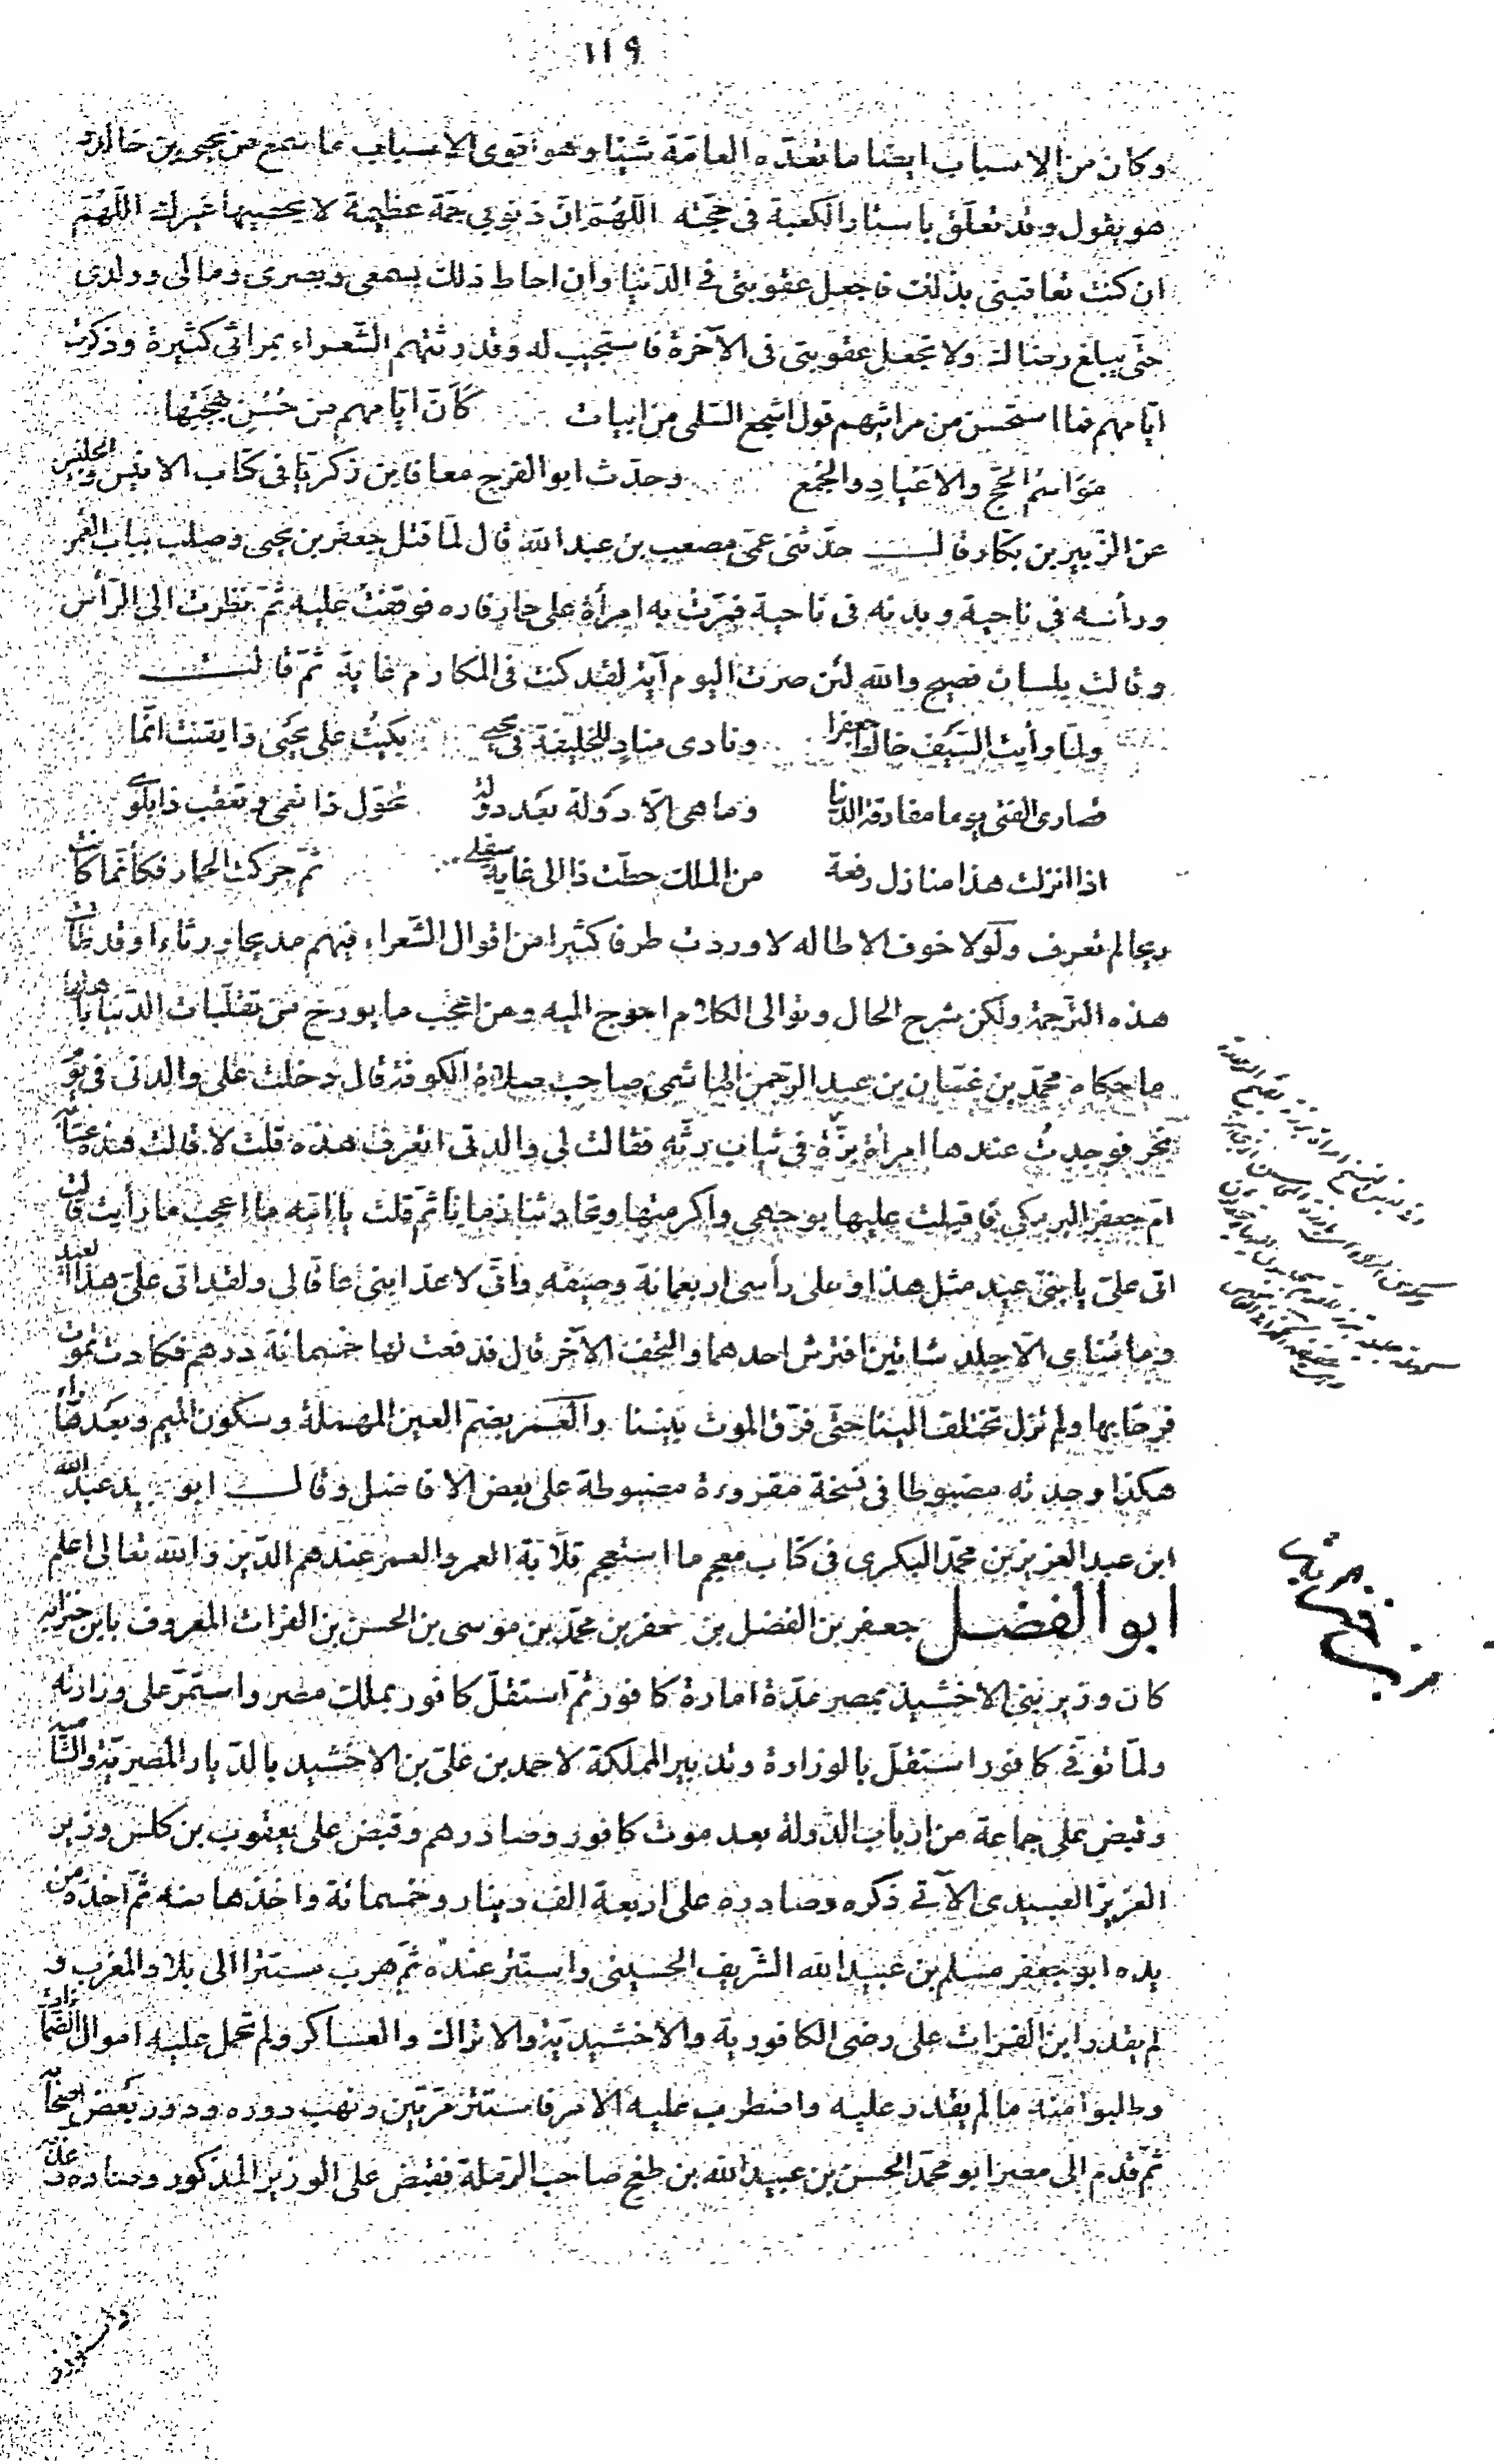 ١١٩
وكان من الاسباب ايضا ما تعدّه العامّة شيئا وهو اقوى الاسباب ما سمع من يحيى بن خالد و
هو يقول وقد تعلّق باستار الكعبة فى حجّته اللّهمّ انّ ذنوبي جمّة عظيمة لا يحصيها غيرك اللّهمّ
ان كنت تعاقبنى بذلك فاجعل عقوبتى فى الدنيا وان احاط ذلك بسمعى وبصرى ومالى وولدى
حتّى يبلغ رضاك ولا تجعل عقوبتى فى الآخرة فاستجيب له وقد رثتهم الشّعراء بمراثى كثيرة وذكرت
ايّامهم فما استحسن من مراثيهم قول اشجع السّلمى من ابيات كَأَنّ ايّامهم من حُسْنِ بهجتها
مَوَاسمُ الحجّ والاعْيادِ والجُمَع وحدّث ابو الفرج معافا بن زكريّا فى كتاب الانيس والجليس
عن الزّبير بن بكّار قالــت حدّثنى عمّى مصعب بن عبد الله قال لمّا قتل جعفر بن يحيى وصلب بباب الجسر
ورأسه فى ناحية وبدنه فى ناحية فمرّت به امرأة على حمار فاره فوقفت عليه ثمّ نظرت الى الرّأس
وقالت بلسان فصيح والله لئن صرت اليوم آية لقد كنت فى المكارم غاية ثمّ قالــت
ولمّا رأيت السّيف خالط جعفرا ونادى منادٍ للخليفة فى يحيى بكيتُ على يحيى وايقنت انّما
قصارى الفتى يوما مفارقة الدّنيا وما هى الّا دَولة بعد دولة تخوّل ذا نعمى وتعقب ذا بلوى
اذا انزلت هذا منازل رفعة من الملك حطّت ذا الى غاية سفلى ثمّ حركت الحمار فكأنّما كانت
ريحا لم تعرف ولولا خوف الاطاله لاوردت طرفا كثيرا من اقوال الشّعراء فيهم مديحا ورثاء وقد طالت
هذه التّرجمة ولكن شرح الحال وتوالى الكلام احوج اليه ومن اعجب ما يورخ من تقلّبات الدّنيا باهلها
ما حكاه محمّد بن غسّان بن عبد الرّحمن الهاشمى صاحب صلاة الكوفة قال دخلت على والدتى فى يوم
نحر فوجدتُ عندها امرأة برزة فى ثياب رثّه فقالت لى والدتى اتعرف هذه قلت لا قالت هذه عتّابه
امّ جعفر البرمكى فاقبلت عليها بوجهى واكرمتها وتحادثنا زمانا ثمّ قلت يا امّه ما اعجب ما رأيت قالت
اتى علىّ يا بنىّ عيد مثل هذا وعلى رأسى اربعمائة وصيفه وانّى لاعدّ ابنى عاقا لى ولقد اتى علىّ هذا العيد
وما مُناى الّا جلد شاتين افترش احدهما والتحف الآخر قال فدفعت لها خمسمائة درهم فكادت تموت
فرحا بها ولم تزل تختلف الينا حتّى فرّق الموت بيننا والعُمر بضمّ العين المهملة وسكون الميم وبعدها راء
هكذا وجدته مضبوطا فى نسخة مقروءة مضبوطة على بعض الافاضل وقالــت ابو عبيد عبد الله
ابن عبد العزيز بن محمّد البكرى فى كتاب معجم ما استعجم قلّاية العمر والعمر عندهم الدّير والله تعالى اعلم
ابو الفضـل جعفر بن الفضل بن جعفر بن محمّد بن موسى بن الحسن بن الفرات المعروف بابن حنزابه
كان وزير بنى الاخشيد بمصر مدّة امارة كافور ثمّ استقلّ كافور بملك مصر واستمرّ على وزارته
ولمّا توفّى كافور استقلّ بالوزارة وتدبير المملكة لاحمد بن علىّ بن الاخشيد بالدّيار المصريّة والشّاميه
وقبض على جماعة من ارباب الدّولة بعد موت كافور وصادرهم وقبض على يعقوب بن كلّس وزير
العزيز العبيدى الآتى ذكره وصادره على اربعة الف دينار وخمسمائة واخذها منه ثمّ اخذه من
يده ابو جعفر مسلم بن عُبيد الله الشّريف الحسينى واستتر عنده ثمّ هرب مستترا الى بلاد المغرب و
لم يقدر ابن الفرات على رضى الكافورية والاخشيديّة والاتراك والعساكر ولم تحمل عليه اموال الضمانات
وطلبوا منه ما لم يقدر عليه واضطرب عليه الامر فاستتر مرّتين ونهب دوره ودور بعض اصحابه
ثمّ قدم الى مصر ابو محمّد الحسن بن عبيد الله بن طغج صاحب الرّملة فقبض على الوزير المذكور وصادره وعذّبه